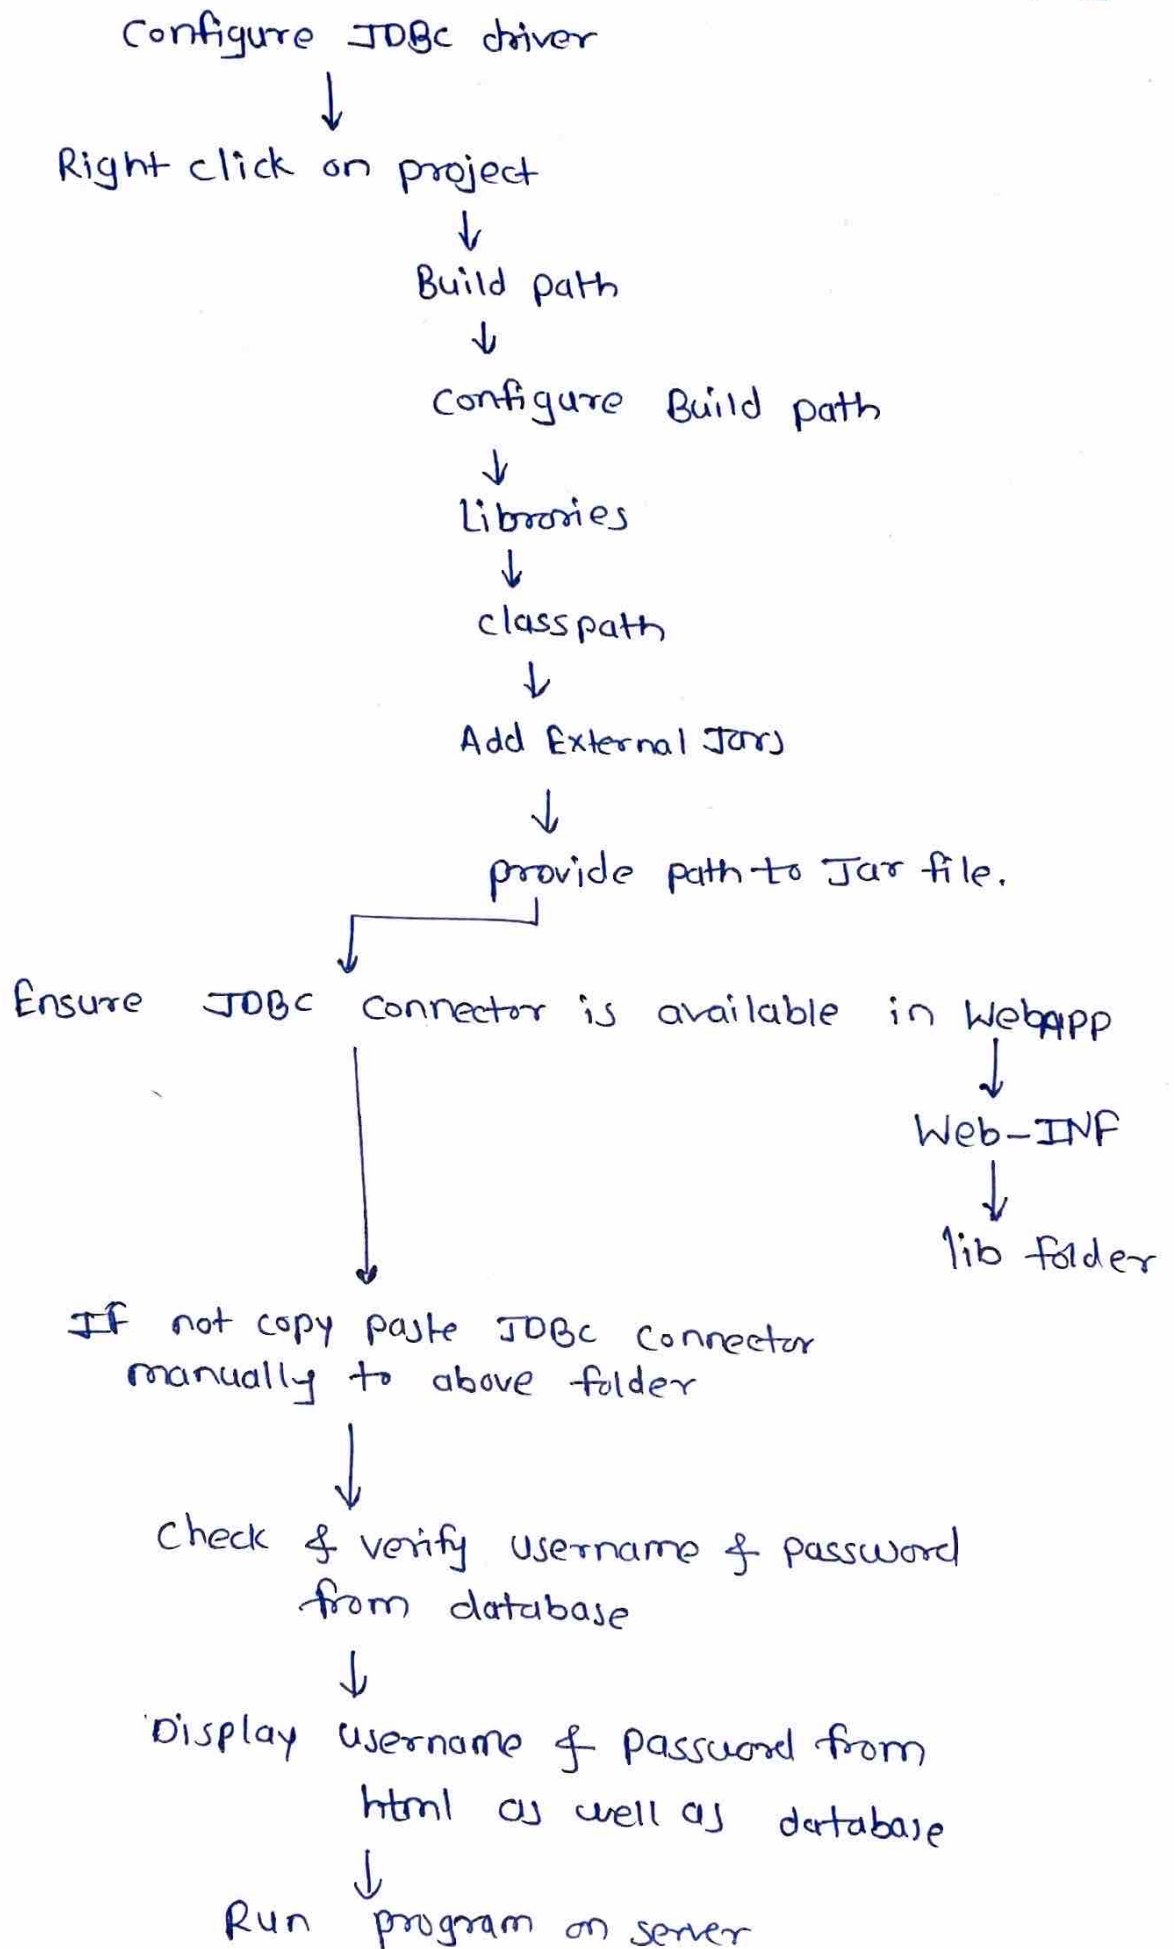 Configure JDBC driver
↓
Right click on project
↓
Build path
↓
Configure Build path
↓
Libraries
↓
classpath
↓
Add External Jars
↓
provide path to Jar file.
↓
Ensure JDBC connector is available in WebAPP
↓
Web-INF
↓
lib folder
↓
If not copy paste JDBC connector
manually to above folder
↓
Check & verify username & password
from database
↓
Display username & password from
html as well as database
↓
Run program on server